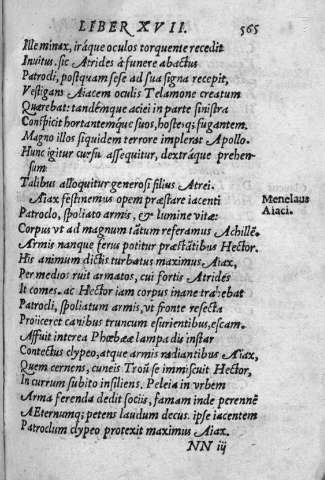 LIBER XVII. 565
Ille minax, iráque oculos torquente recedit
Inuitus. sic Atrides à funere abactus
Patrocli, postquam sese ad sua signa recepit,
Vestigans Aiacem oculis Telamone creatum
Quærebat: tandémque aciei in parte sinistra
Conspicit hortantemq́ue suos, hosteq; fugantem.
Magno illos siquidem terrore implerat Apollo.
Hunc igitur cursu assequitur, dextráque prehen-
sum
Talibus alloquitur generosi filius Atrei.
Aiax festinemus opem præstare iacenti
Menelaus
Patroclo, spoliato armis, & lumine vitæ:
Aiaci.
Corpus vt ad magnum tātum referamus Achillē.
Armis nanque ferus potitur præstātibus Hector.
His animum dictis turbatus maximus Aiax,
Per medios ruit armatos, cui fortis Atrides
It comes. ac Hector iam corpus inane trahebat
Patrocli, spoliatum armis, vt fronte resecta
Proiiceret canibus truncum esurientibus, escam.
Affuit interea Phœbeæ lampadis instar
Contectus clypeo, atque armis radiantibus Aiax,
Quem cernens, cuneis Troū se immiscuit Hector,
In currum subito insiliens. Peleia in vrbem
Arma ferenda dedit sociis, famam inde perennē
AEternumq; petens laudum decus. ipse iacentem
Patroclum clypeo protexit maximus Aiax.
NN iij